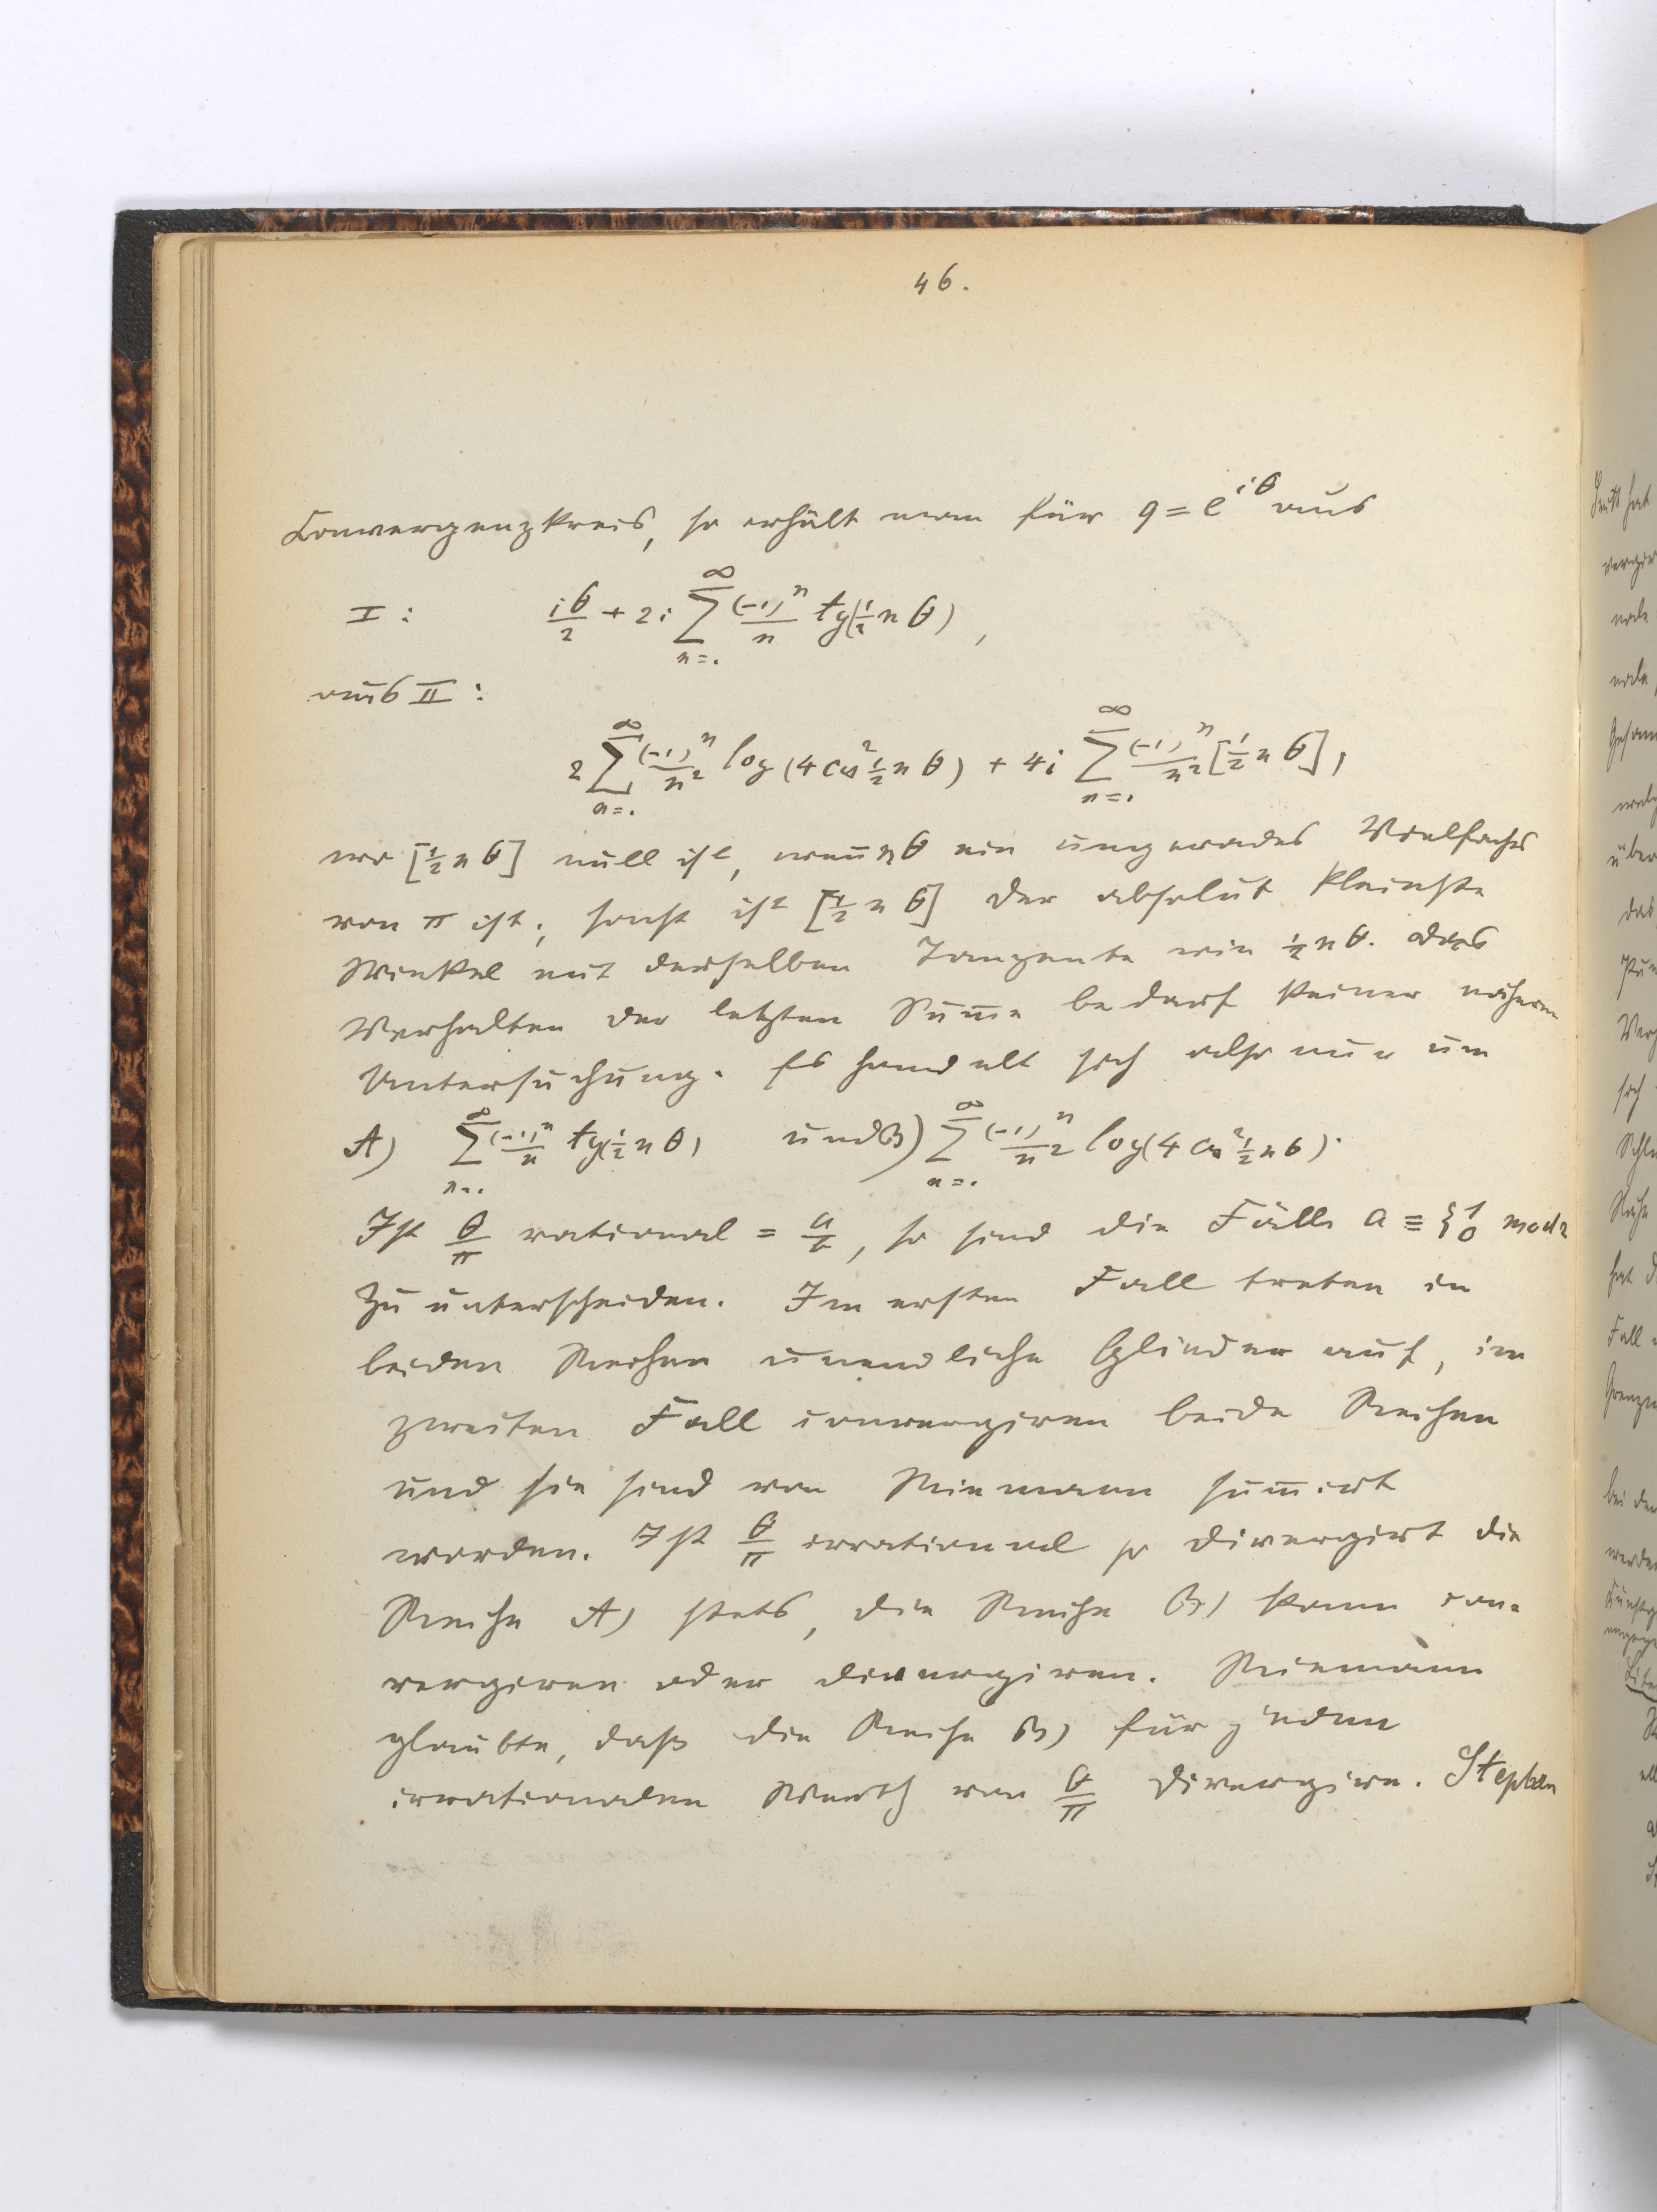 46.
Convergenzkreis, so erhält man für q = e^{iθ} aus
I: iθ/2 + 2i ∑_{n=1}^{∞} (-1)^n/n tg(½nθ),
aus II:
2 ∑_{n=1}^{∞} (-1)^n/n² log(4cos²½nθ) + 4i ∑_{n=1}^{∞} (-1)^n/n² [½nθ],
wo [½nθ] null ist, wenn nθ ein ungerades Vielfaches
von π ist; sonst ist [½nθ] der absolut kleinste
Winkel mit derselben Tangente wie ½nθ. Das
Verhalten der letzten Summe bedarf keiner näheren
Untersuchung. Es handelt sich also nur um
A) ∑_{n=1}^{∞} (-1)^n/n tg(½nθ) und B) ∑_{n=1}^{∞} (-1)^n/n² log(4cos²½nθ).
Ist θ/π rational = a/b, so sind die Fälle a ≡ {1 0 mod 2
zu unterscheiden. Im ersten Fall treten in
beiden Reihen unendliche Glieder auf, im
zweiten Fall convergiren beide Reihen
und sie sind von Riemann summirt
worden. Ist θ/π irrational so divergirt die
Reihe A) stets, die Reihe B) kann con-
vergiren oder divergiren. Riemann
glaubte, daß die Reihe B) für jeden
irrationalen Werth von θ/π divergire. Stephen